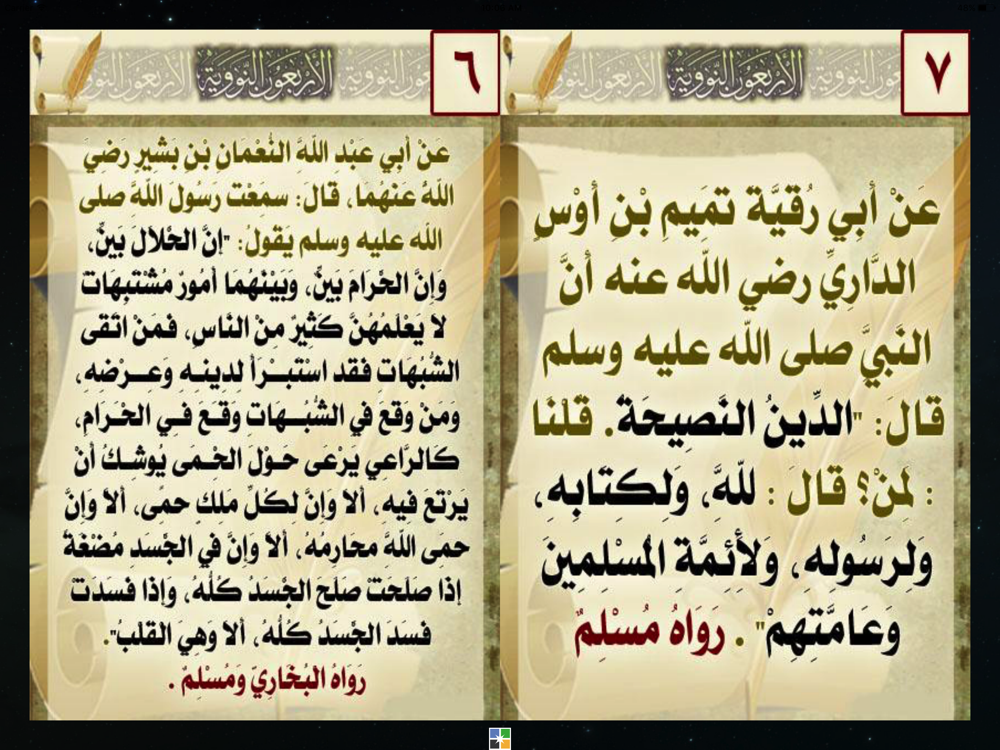 الأربعون النووية
٦
عَنْ أَبِي عَبْدِ اللَّهِ النُّعْمَانِ بْنِ بَشِيرٍ رَضِيَ
اللَّهُ عَنْهُمَا، قَالَ: سَمِعْت رَسُولَ اللَّهِ صلى
الله عليه وسلم يَقُولُ: "إنَّ الْحَلَالَ بَيِّنٌ،
وَإِنَّ الْحَرَامَ بَيِّنٌ، وَبَيْنَهُمَا أُمُورٌ مُشْتَبِهَاتٌ
لَا يَعْلَمُهُنَّ كَثِيرٌ مِنْ النَّاسِ، فَمَنْ اتَّقَى
الشُّبُهَاتِ فَقد اسْتَبْـرَأَ لِدِينِـهِ وَعِـرْضِهِ،
وَمَنْ وَقَعَ فِي الشُّبُـهَاتِ وَقَـعَ فِـي الْحَرَامِ،
كَالرَّاعِي يَرْعَى حَـوْلَ الْحِـمَى يُوشِـكُ أَنْ
يَرْتَعَ فِيهِ، أَلَا وَإِنَّ لِكُلِّ مَلِكٍ حِمًى، أَلَا وَإِنَّ
حِمَى اللَّهِ مَحَارِمُهُ، أَلَا وَإِنَّ فِي الْجَسَدِ مُضْغَةً
إذَا صَلَحَتْ صَلَحَ الْجَسَدُ كُلُّهُ، وَإذَا فَسَدَتْ
فَسَدَ الْجَسَدُ كُلُّهُ، أَلَا وَهِيَ الْقَلْبُ".
رَوَاهُ الْبُخَارِيُّ وَمُسْلِمٌ .
الأربعون النووية
٧
عَنْ أَبِي رُقَيَّةَ تَمِيمِ بْنِ أَوْسٍ
الدَّارِيِّ رضي الله عنه أَنَّ
النَّبِيَّ صلى الله عليه وسلم
قَالَ: "الدِّينُ النَّصِيحَةُ. قُلْنَا
: لِمَنْ؟ قَالَ : لِلَّهِ، وَلِكِتَابِهِ،
وَلِرَسُولِهِ، وَلِأَئِمَّةِ الْمُسْلِمِينَ
وَعَامَّتِهِمْ" . رَوَاهُ مُسْلِمٌ